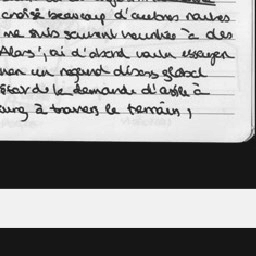 croisé beaucoup d'autres routes
me suis souvent heurtée à des
Alors, j'ai d'abord voulu essayer
un regard disons global
de la demande d'asile à
à travers le terrain,